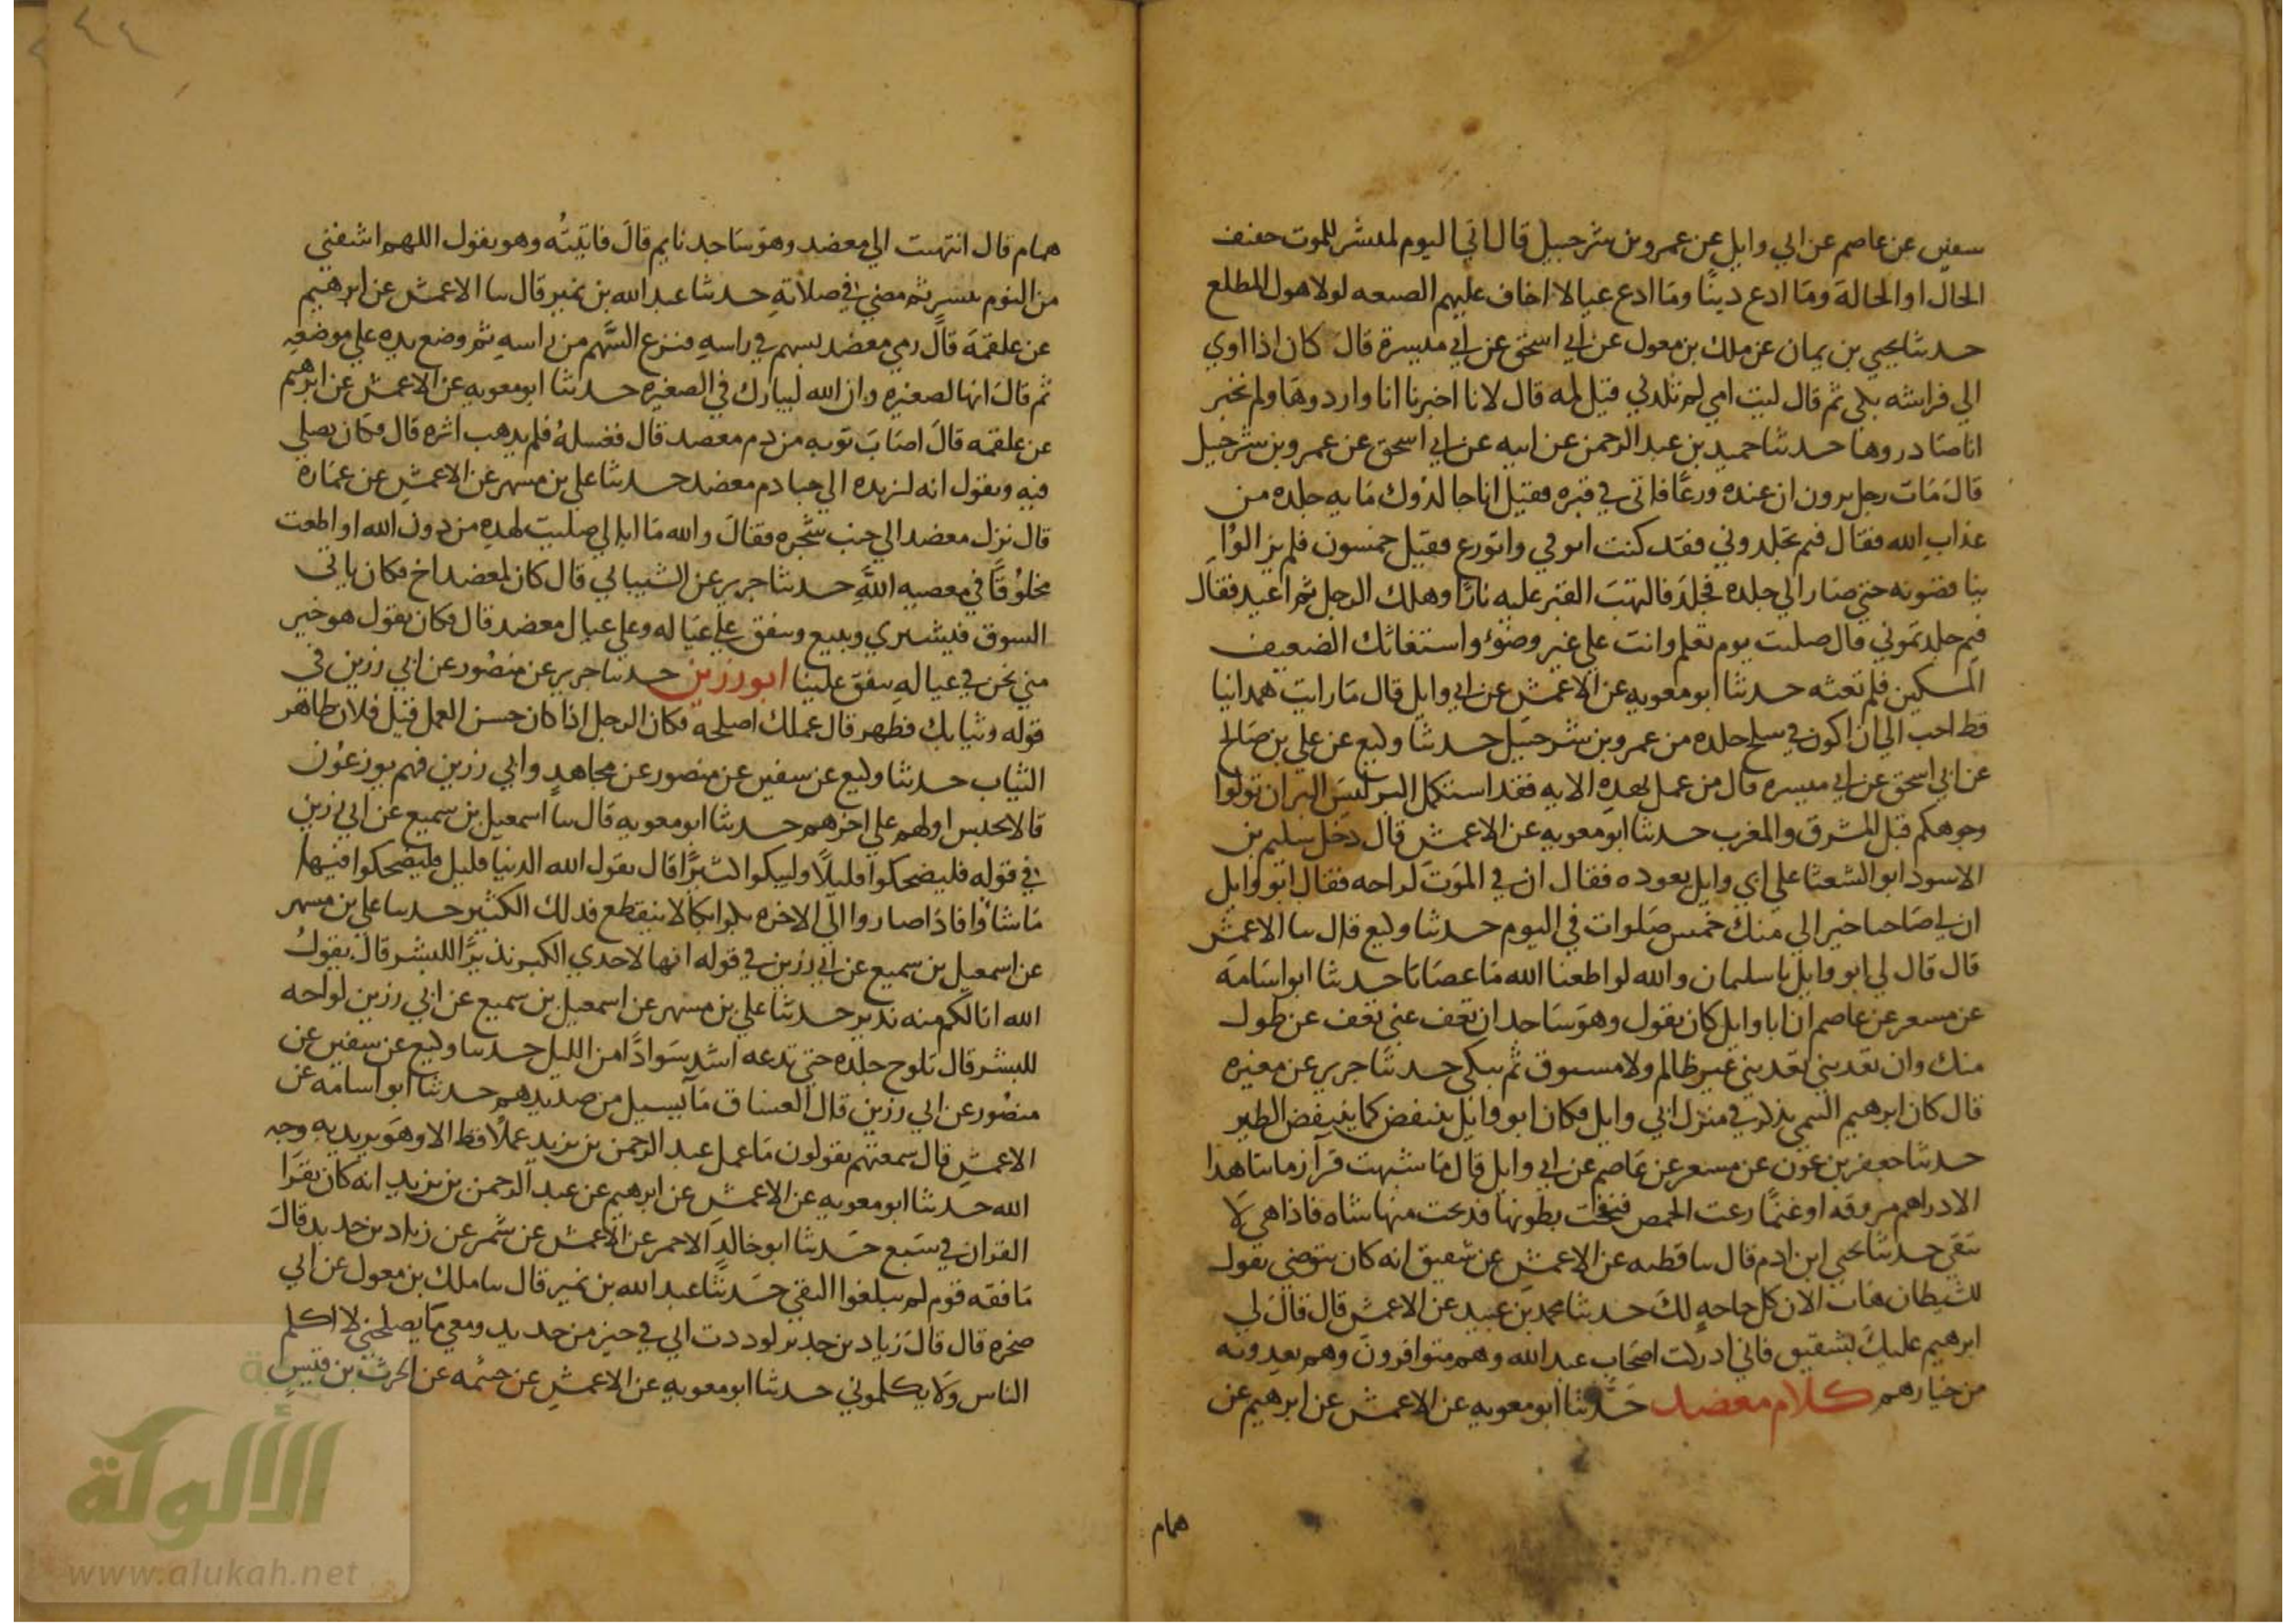 سفين عن عاصم عن ابي وايل عن عمرو بن شرحبيل قال اني اليوم لميسر للموت خفيف
الحال او الحالة وما ادع دينا وما ادع عيالا اخاف عليهم الضيعه لولا هول المطلع
حدثنا يحيي بن يمان عن ملك بن مغول عن ابي اسحق عن ابي ميسرة قال كان اذا اوي
الي فراشه بكي ثم قال ليت امي لم تلدني فقيل لمه قال لانا اخبرنا انا واردوها ولم نخبر
انا صادروها حدثنا حميد بن عبد الرحمن عن ابيه عن ابي اسحق عن عمرو بن شرحبيل
قال مات رجل يرون ان عنده ورعا فاتي في قبره فقيل انا جالدوك مايه جلده من
عذاب الله فقال فيم تجلدوني فقد كنت اتوقي واتورع فقيل خمسون فلم يزالوا
يناقضونه حتي صار الي جلده فجلد فالتهب القبر عليه نارا وهلك الرجل ثم اعيد فقال
فيم جلدتموني قال صليت يوم تعلم وانت علي غير وضوء واستغاثك الضعيف
المسكين فلم تغثه حدثنا ابو معويه عن الاعمش عن ابي وايل قال ما رايت همدانيا
قط احب الي ان اكون في سلخ جلده من عمرو بن شرحبيل حدثنا وكيع عن علي بن صالح
عن ابي اسحق عن ابي ميسره قال من عمل بهذه الايه فقد استكمل البر ليس البر ان تولوا
وجوهكم قبل المشرق والمغرب حدثنا ابو معويه عن الاعمش قال دخل سليم بن
الاسود ابو الشعثا علي ابي وايل يعوده فقال ان في الموت لراحه فقال ابو وايل
ان لي صاحبا خير الي منك خمس صلوات في اليوم حدثنا وكيع قال سا الاعمش
قال قال لي ابو وايل يا سليمان والله لو اطعنا الله ما عصانا حدثنا ابو اسامه
عن مسعر عن عاصم ان ابا وايل كان يقول وهو ساجد ان تعف عني تعف عن طول
منك وان تعذبني تعذبني غير ظالم ولا مسبوق ثم يبكي حدثنا جرير عن مغيره
قال كان ابرهيم التيمي يذكر في منزل ابي وايل فكان ابو وايل ينتفض كما ينتفض الطير
حدثنا جعفر بن عون عن مسعر عن عاصم عن ابي وايل قال ما شبهت قرا زماننا هذا
الا دراهم مزوقه او غنما رعت الحمض فنفخت بطونها فذبحت منها شاه فاذا هي لا
تنقي حدثنا يحيي ابن ادم قال سا قطبه عن الاعمش عن شقيق انه كان يتوضي يقول
للشيطان هات الان كل حاجه لك حدثنا محمد بن عبيد عن الاعمش قال قال لي
ابرهيم عليك بشقيق فاني ادركت اصحاب عبد الله وهم متوافرون وهم يعدونه
من خيارهم كلام معضد حدثنا ابو معويه عن الاعمش عن ابرهيم عن
همام
٢٤٤
همام قال انتهيت الي معضد وهو ساجد نايم قال فاتيته وهو يقول اللهم اشفني
من النوم بيسير ثم مضي في صلاته حدثنا عبد الله بن نمير قال سا الاعمش عن ابرهيم
عن علقمة قال رمي معضد بسهم في راسه فنزع السهم من راسه ثم وضع يده علي موضعه
ثم قال انها لصغيره وان الله ليبارك في الصغيره حدثنا ابو معويه عن الاعمش عن ابرهيم
عن علقمه قال اصاب ثوبه من دم معضد قال فغسله فلم يذهب اثره قال فكان يصلي
فيه ويقول انه ليزيده الي حبا دم معضد حدثنا علي بن مسهر عن الاعمش عن عماره
قال نزل معضد الي جنب شجره فقال والله ما ابالي صليت لهذه من دون الله او اطعت
مخلوقا في معصيه الله حدثنا جرير عن الشيباني قال كان لمعضد اخ فكان ياتي
السوق فيشتري ويبيع وينفق علي عياله وعلي عيال معضد قال فكان يقول هو خير
مني نحن في عياله ينفق علينا ابو رزين حدثنا جرير عن منصور عن ابي رزين في
قوله وثيابك فطهر قال عملك اصلحه فكان الرجل اذا كان حسن العمل قيل فلان طاهر
الثياب حدثنا وكيع عن سفين عن منصور عن مجاهد وابي رزين فهم يوزعون
قالا يحبس اولهم علي اخرهم حدثنا ابو معويه قال سا اسمعيل بن سميع عن ابي رزين
في قوله فليضحكوا قليلا وليبكوا كثيرا قال يقول الله الدنيا قليل فليضحكوا فيها
ما شاوا فاذا صاروا الي الاخره بكوا بكا لا ينقطع فذلك الكثير حدثنا علي بن مسهر
عن اسمعيل بن سميع عن ابي رزين في قوله انها لاحدي الكبر نذيرا للبشر قال يقول
الله انا لكم منه نذير حدثنا علي بن مسهر عن اسمعيل بن سميع عن ابي رزين لواحه
للبشر قال تلوح جلده حتي تدعه اشد سوادا من الليل حدثنا وكيع عن سفين عن
منصور عن ابي رزين قال الغساق ما يسيل من صديدهم حدثنا ابو اسامه عن
الاعمش قال سمعتهم يقولون ما عمل عبد الرحمن بن يزيد عملا قط الا وهو يريد به وجه
الله حدثنا ابو معويه عن الاعمش عن ابرهيم عن عبد الرحمن بن يزيد انه كان يقرا
القران في سبع حدثنا ابو خالد الاحمر عن الاعمش عن شمر عن زياد بن حدير قال
ما فقه قوم لم يبلغوا التقي حدثنا عبد الله بن نمير قال سا ملك بن مغول عن ابي
صخره قال قال زياد بن حدير لوددت اني في حيز من حديد ومعي ما يصلحني لا اكلم
الناس ولا يكلموني حدثنا ابو معويه عن الاعمش عن خيثمه عن الحرث بن قيس
الألوكة
www.alukah.net